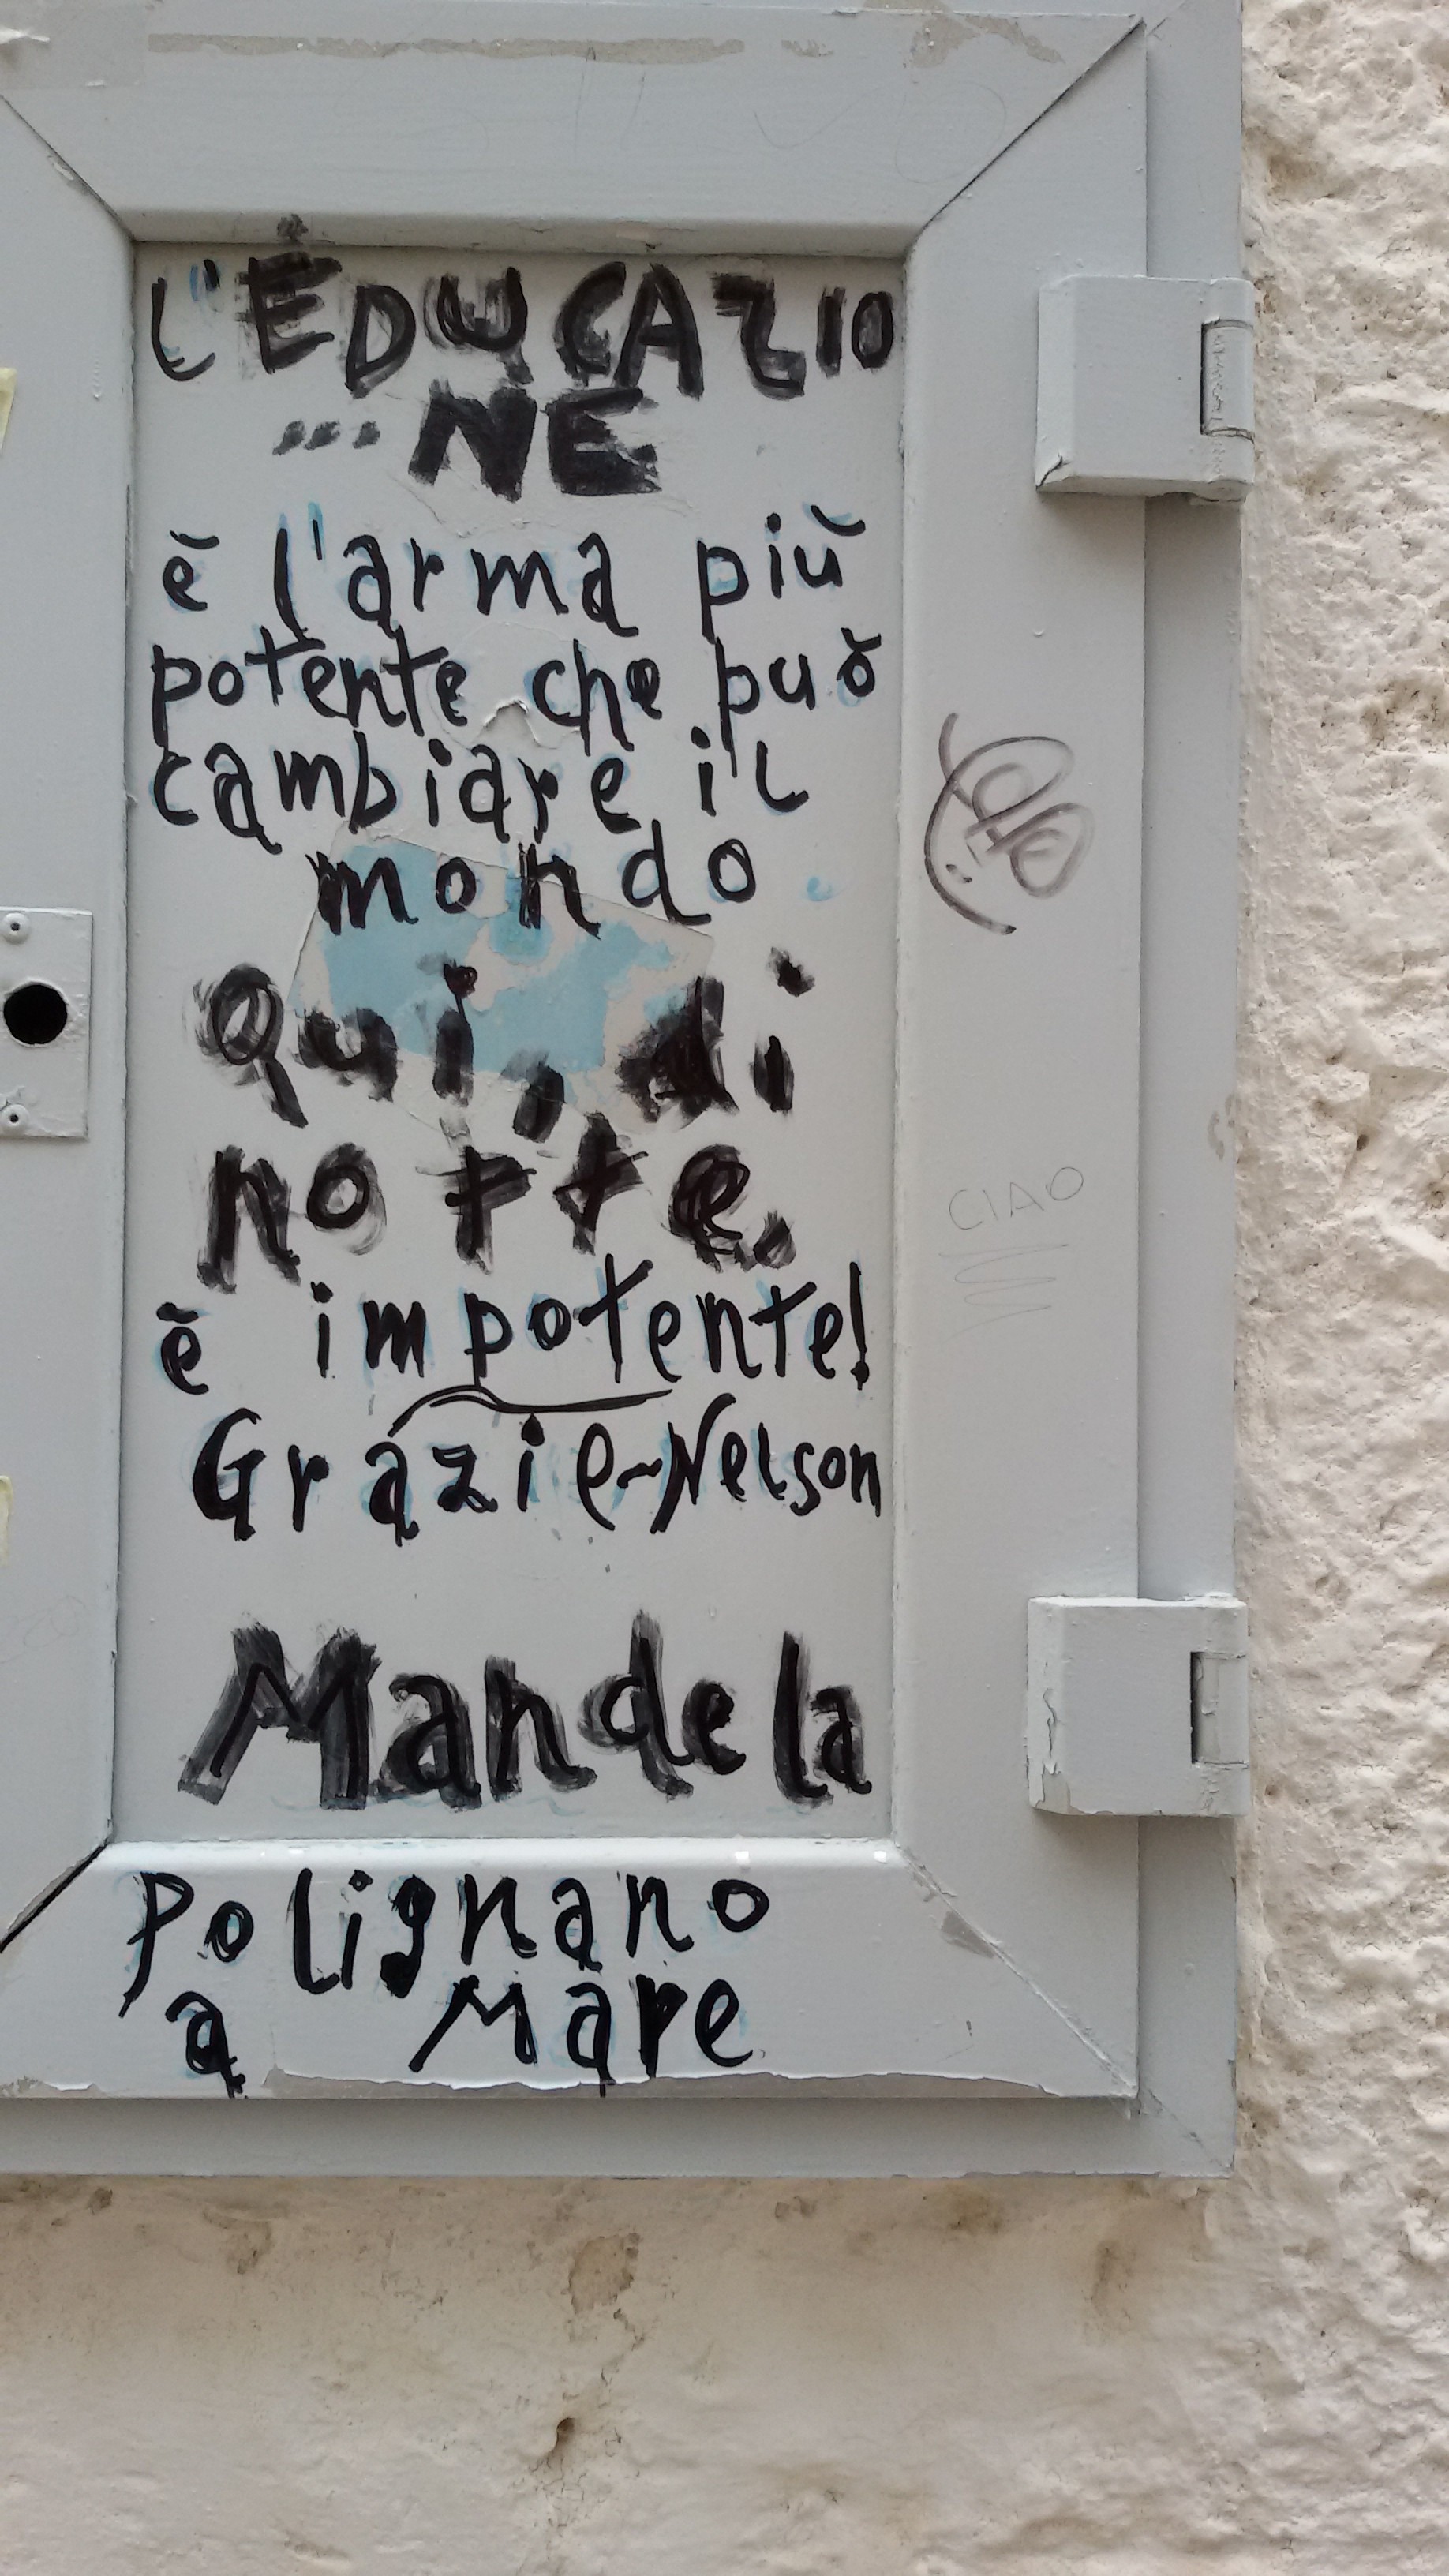 L'EDUCAZIO
... NE
è l'arma più
potente che può
cambiare il
mondo.
Qui, di
notte,
è impotente!
Grazie-Nelson
Mandela
Polignano
a Mare
CIAO